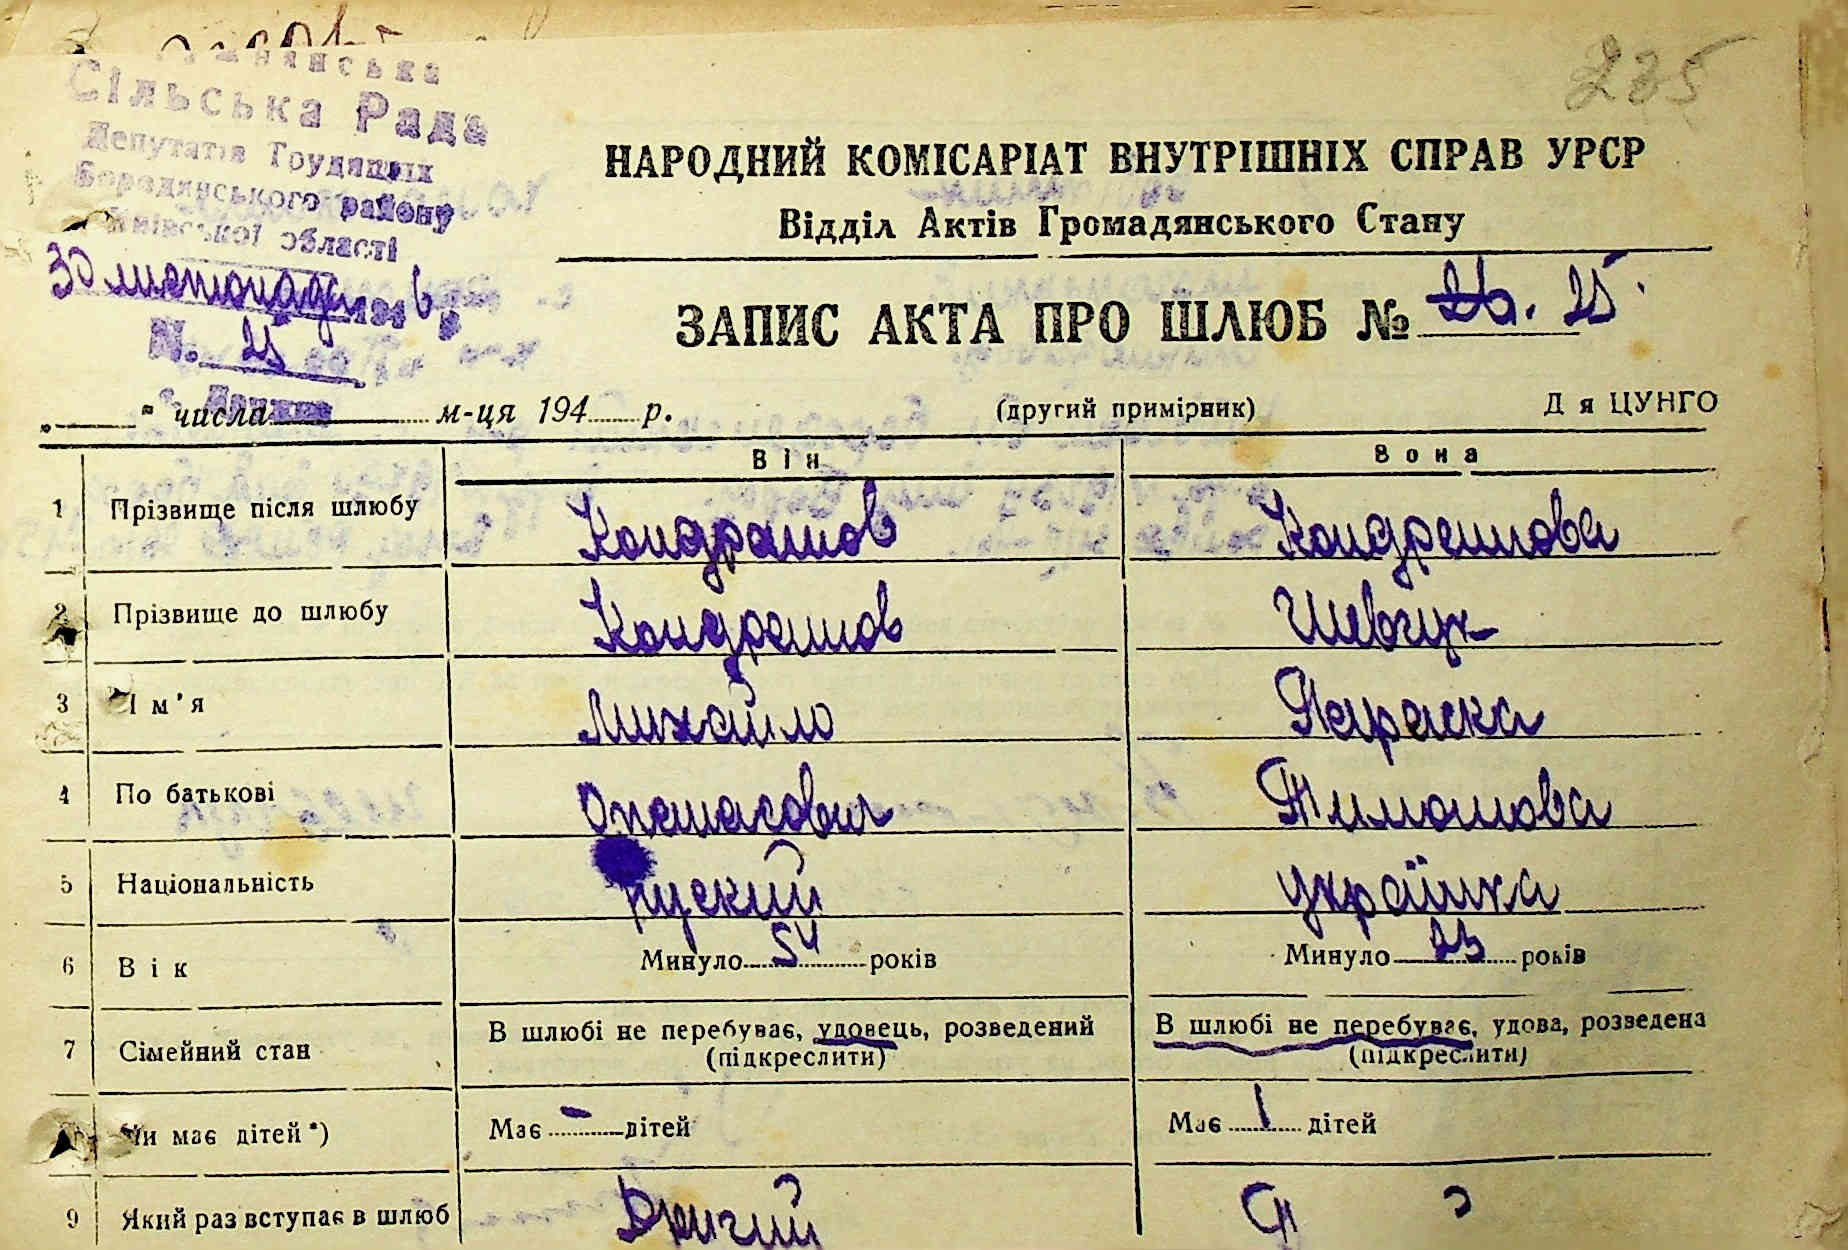 235
Сільська Рада
Депутатів Трудящих
Бородянського району
Київської області
30 листопада 194 6 р
№ 25
НАРОДНИЙ КОМІСАРІАТ ВНУТРІШНІХ СПРАВ УРСР
Відділ Актів Громадянського Стану
ЗАПИС АКТА ПРО ШЛЮБ № 26. 25
„ " числа м-ця 194 р. (другий примірник) Д я ЦУНГО
Він Вона
1 Прізвище після шлюбу Кондрашов Кондрашова
2 Прізвище до шлюбу Кондрашов Шевчук
3 Ім'я Михайло Параска
4 По батькові Опанасович Тимошова
5 Національність руский українка
6 Вік Минуло 54 років Минуло 23 років
7 Сімейний стан В шлюбі не перебуває, удовець, розведений (підкреслити) В шлюбі не перебуває, удова, розведена (підкреслити)
Чи має дітей*) Має – дітей Має 1 дітей
9 Який раз вступає в шлюб Другий